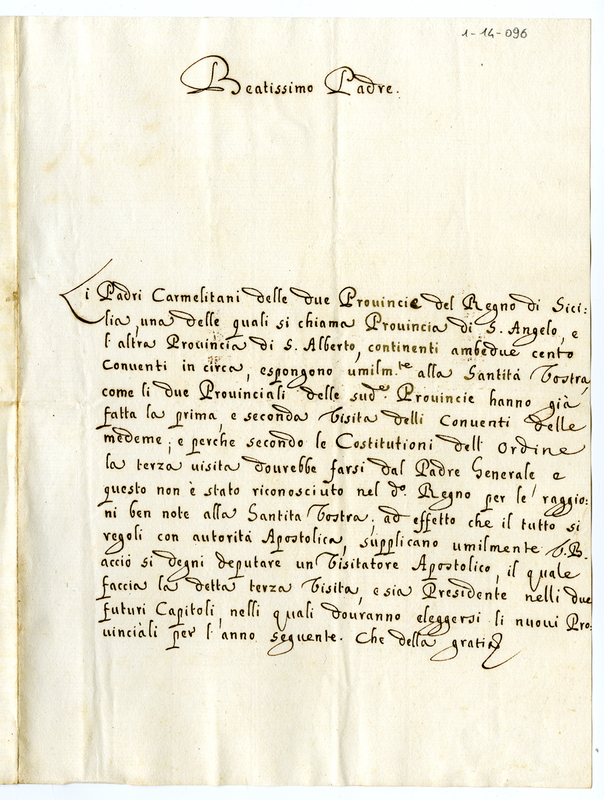 1-14-096
Beatissimo Padre.
Li Padri Carmelitani delle due Provincie del Regno di Sici:
lia, una delle quali si chiama Provincia di S. Angelo, e
l'altra Provincia di S. Alberto, continenti ambedue cento
Conventi in circa, espongono umilm.te alla Santità Vostra,
come li due Provinciali delle sud.e Provincie hanno già
fatta la prima, e seconda Visita delli Conventi delle
medeme; e perche secondo le Costitutioni dell'Ordine
la terza uisita dourebbe farsi dal Padre Generale e
questo non è stato riconosciuto nel d.o Regno per le raggio:
ni ben note alla Santita Vostra; ad effetto che il tutto si
regoli con autorità Apostolica, supplicano umilmente V.B.
acciò si degni deputare un Visitatore Apostolico, il quale
faccia la detta terza Visita, e sia Presidente nelli due
futuri Capitoli, nelli quali douranno eleggersi li nuoui Pro:
uinciali per l'anno seguente. Che della gratia